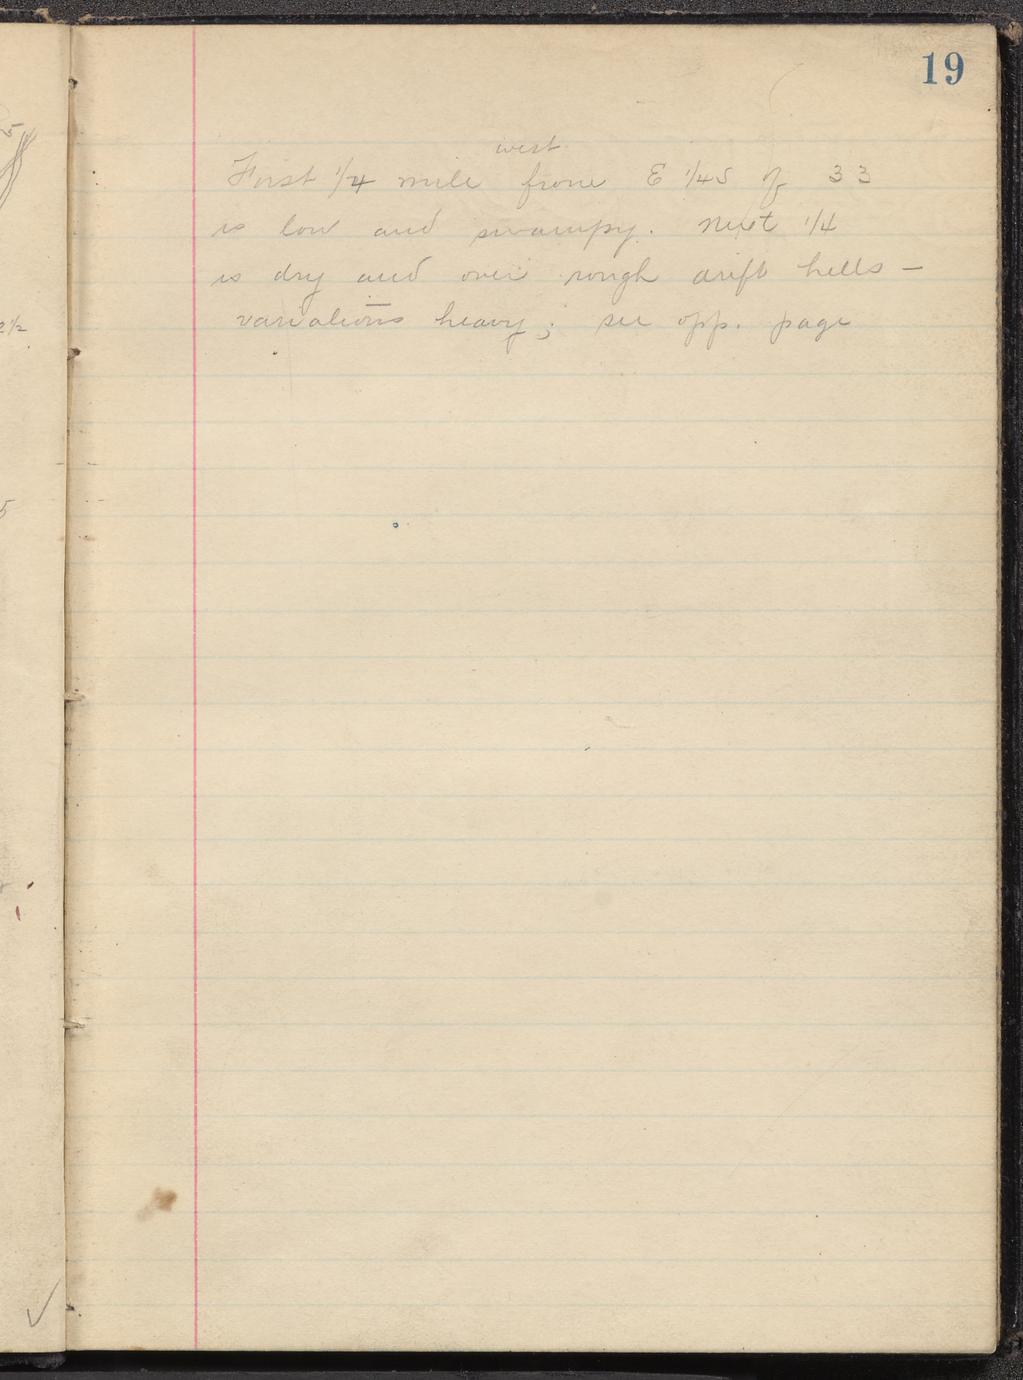 19
west
First 1/4 mile from E 1/4S of 33
is low and swampy. Next 1/4
is dry and over rough drift hills —
variations heavy; see opp. page
5
2 1/2
5